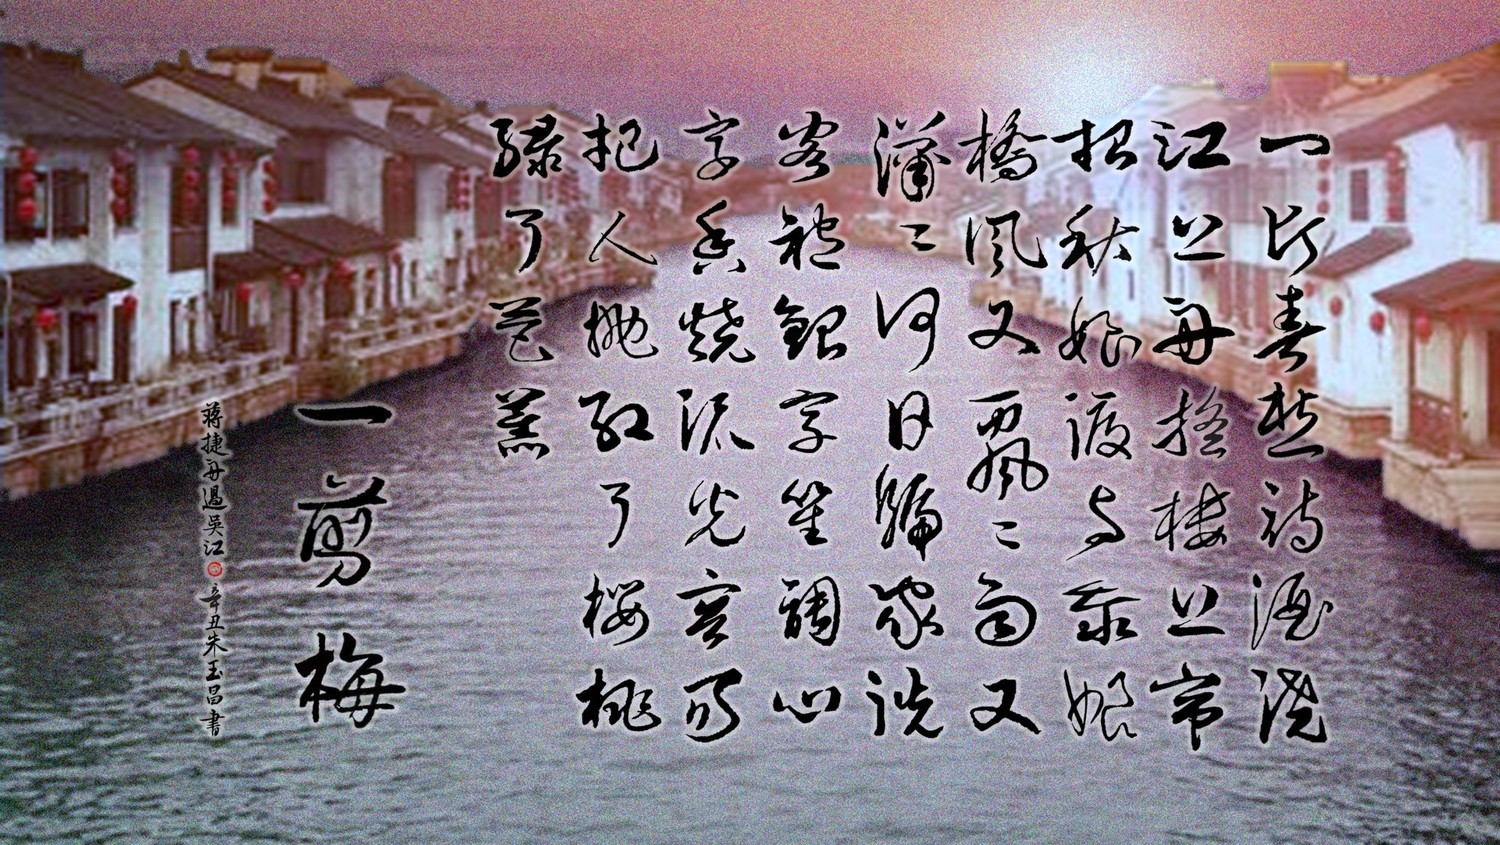 一片春愁待酒澆
江上舟摇楼上帘
招秋娘渡与泰娘
橋風又飄〻雨又
瀟〻何日歸家洗
客袍銀字笙調心
字香燒流光容易
把人抛红了樱桃
绿了芭蕉
一剪梅
蒋捷舟過吳江
辛丑朱玉昌書